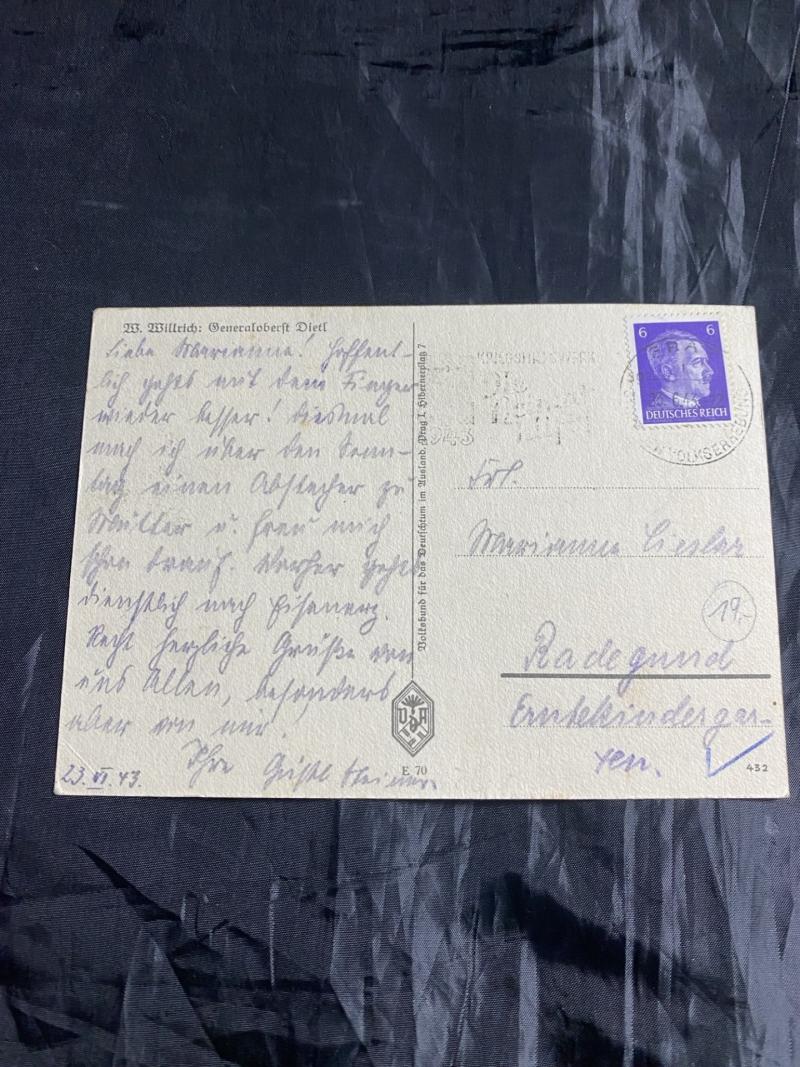 W. Willrich: Generaloberst Dietl
Liebe Marianne! Hoffent-
lich gehts mit dem Finger
wieder besser! Diesmal
mach ich über den Sonn-
tag einen Abstecher zu
Mutter u. freu mich
schon drauf. Vorher gehts
dienstlich nach Eisenerz.
Recht herzliche Grüße von
uns Allen, besonders
aber von mir.
Ihre Gustl
23.VI.43.
Volksbund für das Deutschtum im Ausland, Prag I, Hibernerplatz 7
VDA
E 70
1943
6 6
DEUTSCHES REICH
VOLKSERHEBUNG
Frl.
Marianne
19.-
Radegund
Erntekindergar-
ten.
432